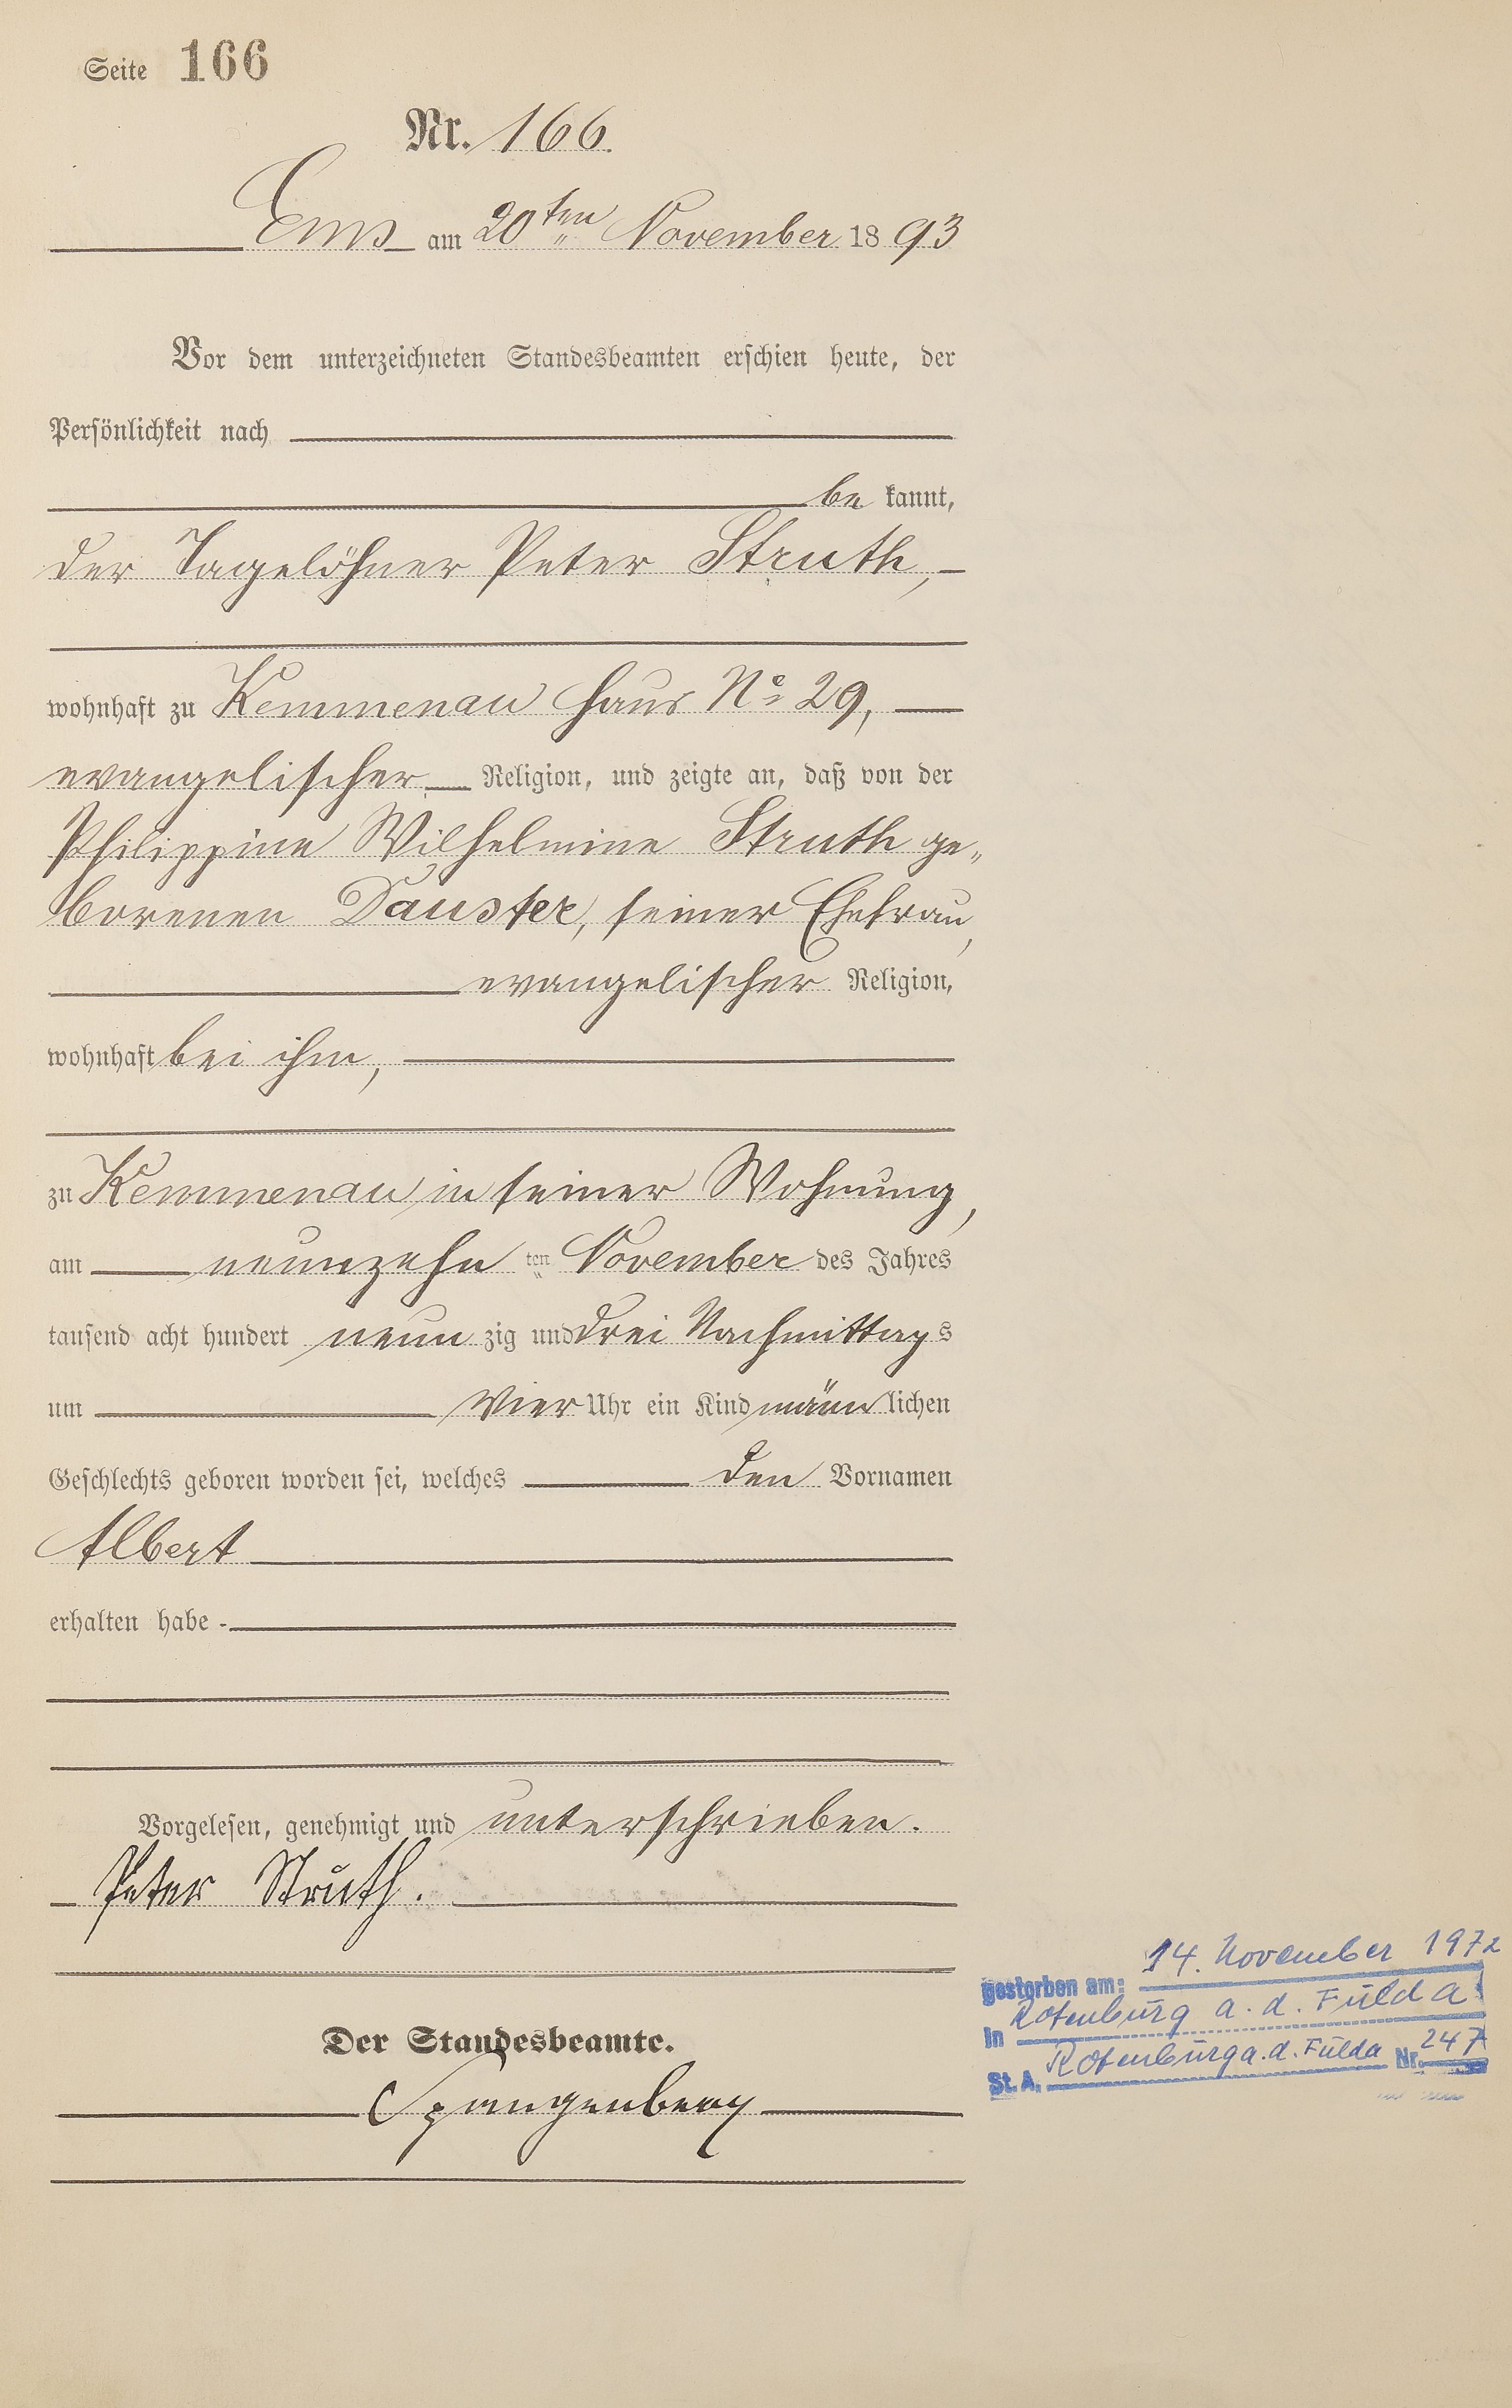 Seite 166
Nr. 166.
Ems am 20ten November 1893
Vor dem unterzeichneten Standesbeamten erschien heute, der
Persönlichkeit nach
be kannt,
der Tagelöhner Peter Struth,
wohnhaft zu Kemmenau Haus No 29,
evangelischer Religion, und zeigte an, daß von der
Philippine Wilhelmine Struth ge„
borenen Dauster, seiner Ehefrau,
evangelischer Religion,
wohnhaft bei ihm,
zu Kemmenau in seiner Wohnung,
am neunzehn ten November des Jahres
tausend acht hundert neun zig und drei Nachmittag s
um Vier Uhr ein Kind männ lichen
Geschlechts geboren worden sei, welches den Vornamen
Albert
erhalten habe
Vorgelesen, genehmigt und unterschrieben.
Peter Struth.
Der Standesbeamte.
Spangenberg
gestorben am: 14. November 1972
In Rotenburg a. d. Fulda
St. A. Rotenburg a. d. Fulda Nr. 247